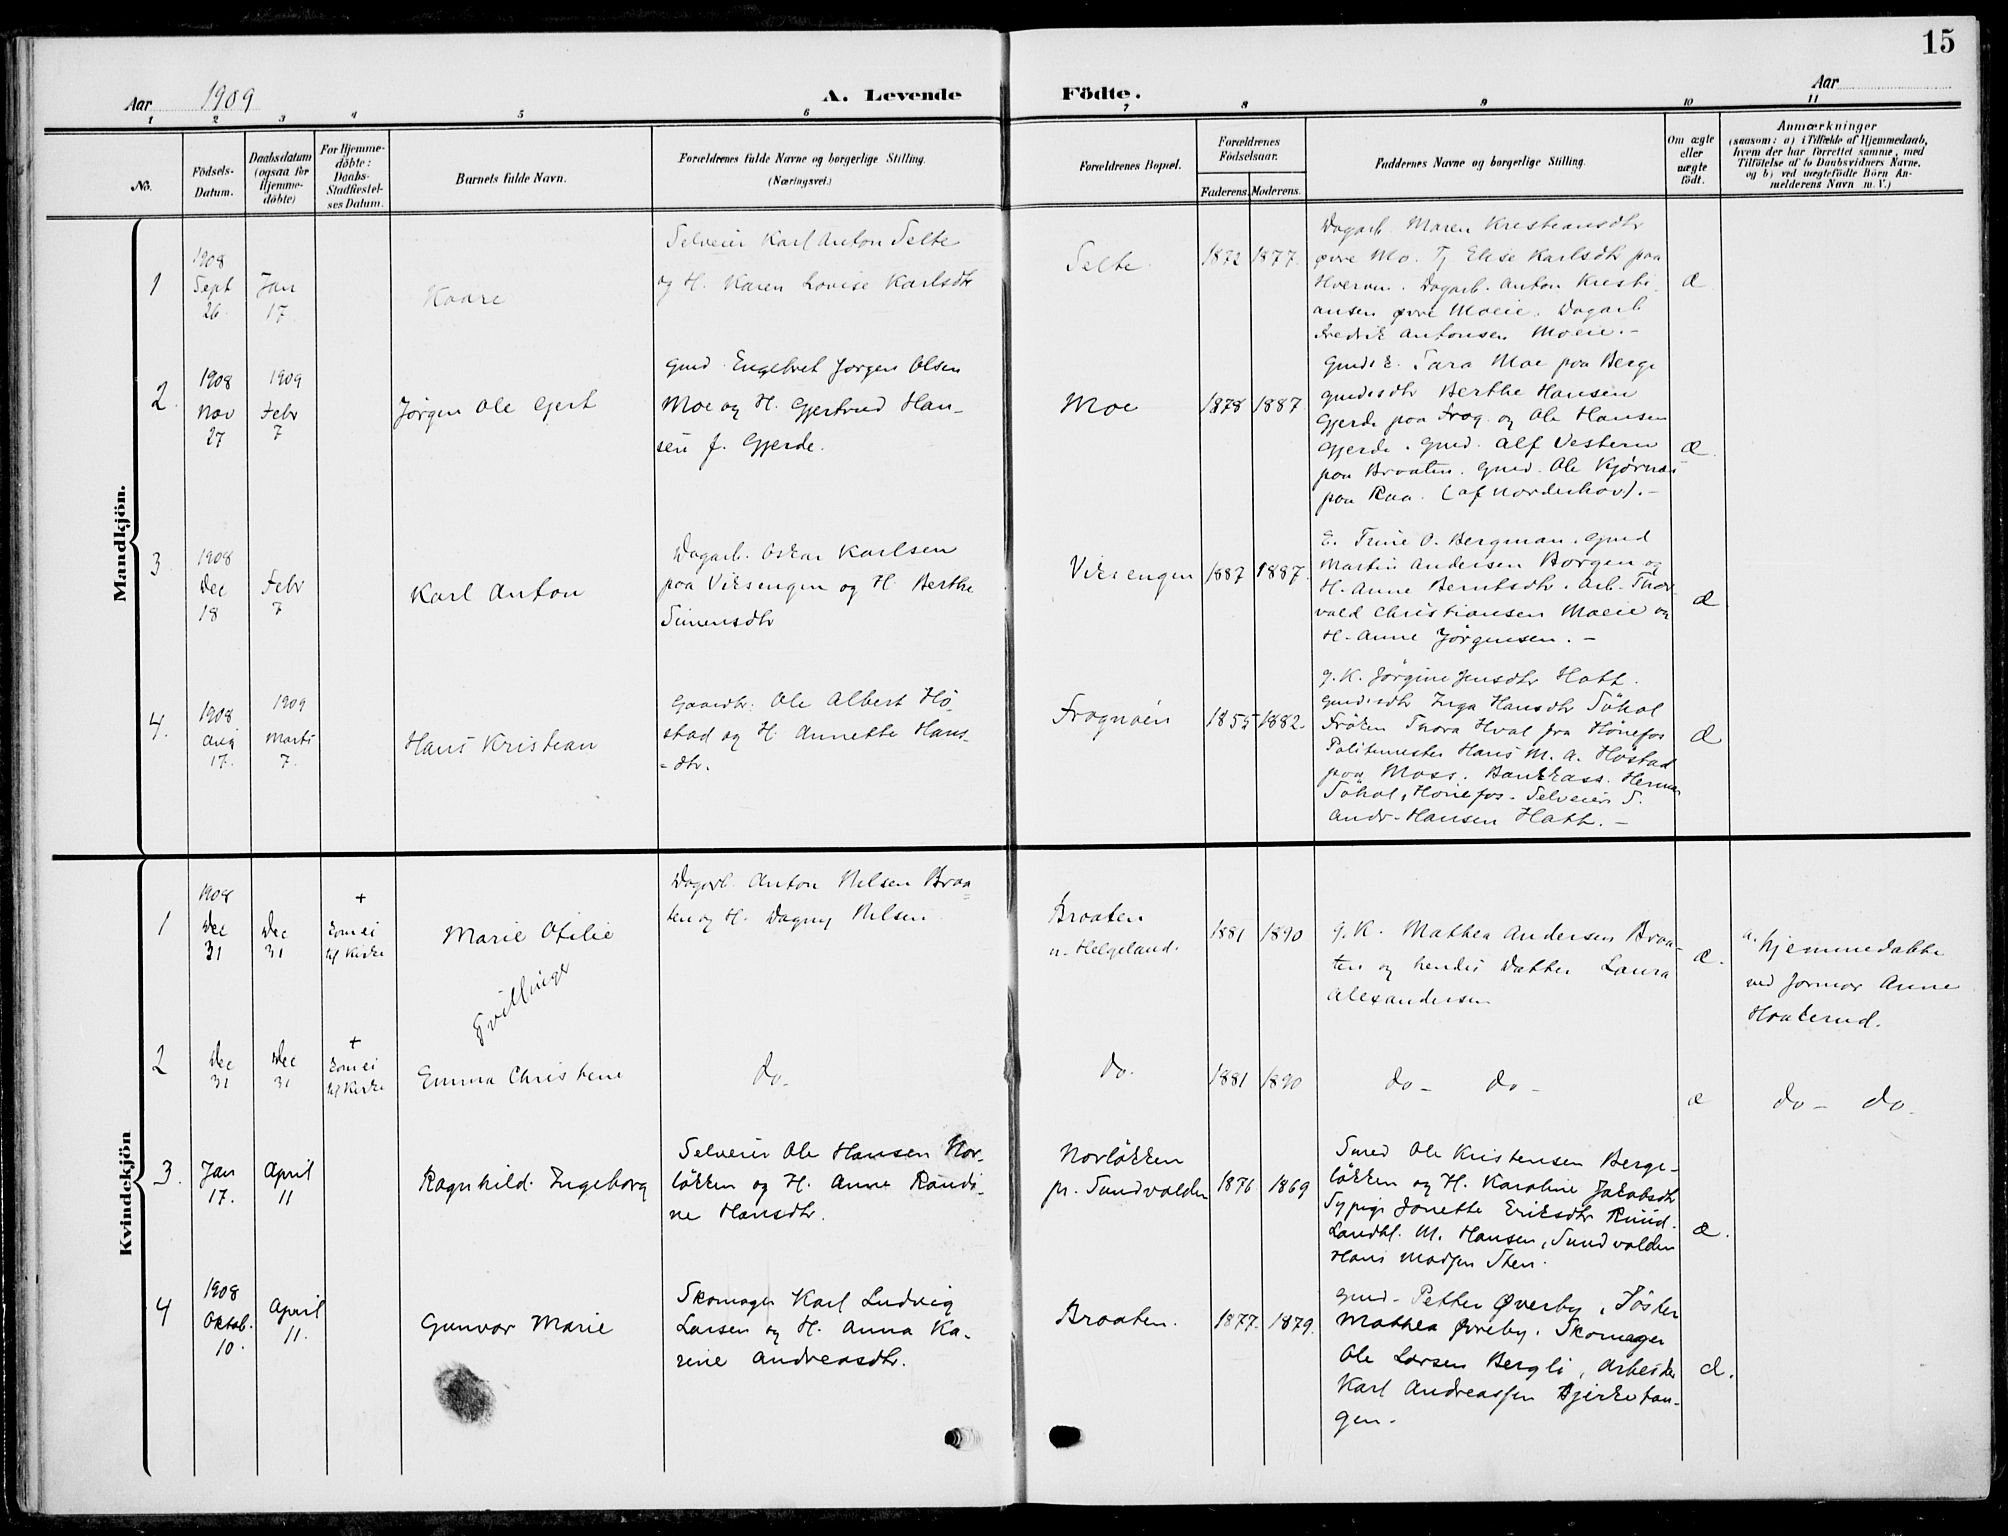 15
Aar 1909
A. Levende Födte.
Aar
1 2 3 4 5 6 7 8 9 10 11
No.
Födsels-Datum.
Daabsdatum (ogsaa for Hjemmedöbte)
For Hjemmedöbte: Daabs-Stadfæstelses Datum.
Barnets fulde Navn.
Forældrenes fulde Navne og borgerlige Stilling.
(Næringsvei.)
Forældrenes Bopæl.
Forældrenes Födselsaar.
Faderens. Moderens.
Faddernes Navne og borgerlige Stilling.
Om ægte eller uægte födt.
Anmærkninger
(saasom: a) i Tilfælde af Hjemmedaab,
hvem der har forrettet samme, med
Tilföielse af to Daabsvidners Navne,
og b) ved uægtefödte Börn An-
melderens Navn m. V.)
Mandkjön.
1
1908
Sept
26
Jan
17
Kaare
Selveier Karl Anton Selte
og H. Karen Lovise Karlsdtr
Selte
1872 1877.
Dagarb. Maren Kristiansdtr
øvre Mo. Tj Elise Karlsdtr paa
Hverven. Dagarb. Anton Kristi-
ansen øvre Moeie. Dagarb
Fredrik Antonsen Moeie. -
Æ
2.
1908
Nov
27
1909
Febr
7
Jørgen Ole Gjert
Gmd. Engebret Jørgen Olsen
Moe og H. Gjertrud Han-
sen f. Gjerde.
Moe
1878 1887
Gmds E. Sara Moe paa Berge
gmdsdtr Berthe Hansen
Gjerde paa Frog. og Ole Hansen
Gjerde. Gmd. Alf Vestern
paa Braaten. Gmd. Ole Kjørnæs
paa Raa. (af Norderhov). -
Æ.
3
1908
Dec
18
Febr
7
Karl Anton
Dagarb. Oskar Karlsen
paa Viksengen og H. Berthe
Simensdtr
Viksengen
1887 1887.
E. Trine O. Bergman. Gmd
Martin Andersen Borgen og
H. Anne Berntsdtr. Arb. Thor-
vald Christiansen Moeie og
H. Anne Jørgensen. -
Æ
4.
1908
Aug
17.
1909
Marts
7.
Hans Kristian
Gaardbr. Ole Albert Hø-
stad og H. Annette Hans-
-dtr.
Frognøen
1855 1882.
g. K. Jørgine Jensdtr Hatt.
gmdsdtr Inga Hansdtr Søhol
Frøken Thora Hval fra Hönefos
Politimester Hans M. A. Høstad
paa Moss. Bankkass. Herman
Søhol, Hönefos. Selveier S.
Andr. Hansen Hatt. -
Æ
Kvindekjön
1
1908
Dec
31
Dec
31
+
kom ei
til Kirke
Marie Otilie
Dagarb. Anton Nilsen Braa-
ten og H. Dagny Nilsen
Braaten
u. Helgeland.
1881 1890
g. K. Mathea Andersen Braa-
ten og hendes Datter Laura
Alexandersen
Æ.
a. hjemmedøbte
ved Jormor Anne
Haakerud.
Tvillinger
2
Dec
31
Dec
31
+
kom ei
til Kirke
Emma Christine
do.
do.
1881 1890
do - do -
Æ
do - do.
3.
Jan
17.
April
11
Ragnhild Ingeborg
Selveier Ole Hansen Nor-
løkken og H. Anne Randi-
ne Hansdtr.
Norløkken
pr. Sundvolden
1876 1869
Smed Ole Kristensen Berge-
løkken og H. Karoline Jakobsdtr
Sypige Jonette Eriksdtr Ruud.
Landhl. M. Hansen, Sundvolden
Hans Madsen Sten.
Æ.
4
1908
Oktob.
10.
April
11.
Gunvor Marie
Skomager Karl Ludvig
Larsen og H. Anna Ka-
rine Andreasdtr.
Braaten.
1877. 1879.
gmd. Petter Øverby, Söster
Mathea Øvreby. Skomager
Ole Larsen Bergli, Arbeider
Karl Andreassen Bjerketan-
gen.
Æ.